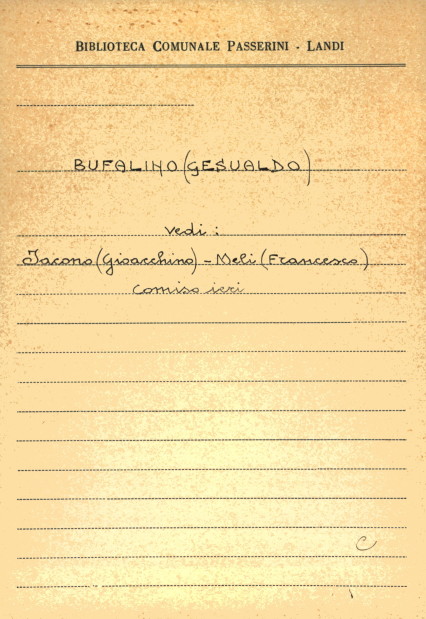 BIBLIOTECA COMUNALE PASSERINI - LANDI
BUFALINO (GESUALDO)
vedi:
Iacono (Gioacchino) - Meli (Francesco)
Comiso ieri
C